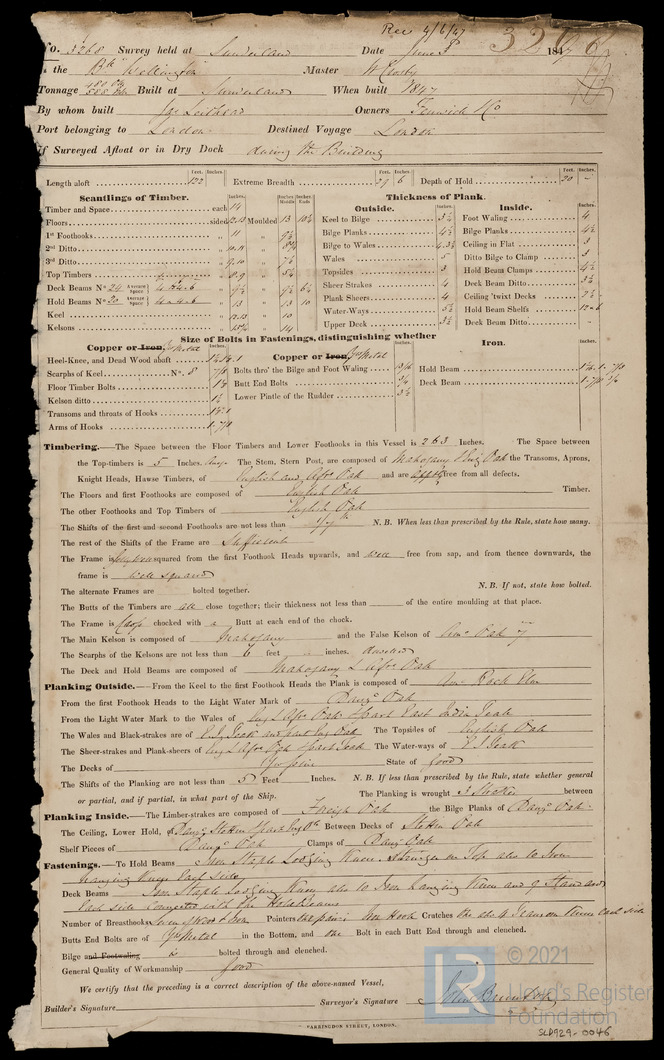 Rec 4/6/47
No. 3268 Survey held at Sunderland Date June 3 1847
3266
is the Bk Wellington Master W Crosby
Tonnage Built at Sunderland When built 1847
By whom built Jas Leithead Owners Fenwick & Co
Port belonging to London Destined Voyage London
If Surveyed Afloat or in Dry Dock during the Building
Length aloft 122 Extreme Breadth 29 6 Depth of Hold 20 -
Feet. Inches. Feet. Inches. Feet. Inches.
Scantlings of Timber. Thickness of Plank.
Inches. Inches. Middle Inches. Ends Outside. Inches. Inside. Inches.
Timber and Space each Keel to Bilge Foot Waling 4
Floors sided 12.13 Moulded 13 10½ Bilge Planks 4½ Bilge Planks 4½
1st Foothooks " 11 " 9½ Bilge to Wales Ceiling in Flat 3
2nd Ditto " 10.11 " 8¾ Wales 5 Ditto Bilge to Clamp 3
3rd Ditto " 9.10 " 7½ Topsides 3 Hold Beam Clamps 4½
Top Timbers " 8.9 " Sheer Strakes 4 Deck Beam Ditto 3½
Deck Beams No. 24 Average Space Plank Sheers 4 Ceiling 'twixt Decks 2½
Hold Beams No. 20 Average Space " 13 " 13 10 Water-Ways 5½ Hold Beam Shelfs
Keel " 12.13 " 10 Upper Deck 3½ Deck Beam Ditto
Kelsons " 13½ " 14
Size of Bolts in Fastenings, distinguishing whether
Copper or Iron. Yw Metal Copper or Iron. Yw Metal Iron.
Heel-Knee, and Dead Wood abaft Bolts thro' the Bilge and Foot Waling Hold Beam
Scarphs of Keel No. 8 7/8 Butt End Bolts 3/4 Deck Beam
Floor Timber Bolts 1⅛ Lower Pintle of the Rudder 3½
Kelson ditto
Transoms and throats of Hooks
Arms of Hooks 1.7/8
Timbering.—The Space between the Floor Timbers and Lower Foothooks in this Vessel is 2 & 3 Inches. The Space between
the Top-timbers is 5 Inches. The Stem, Stern Post, are composed of Mahogany & Eng Oak the Transoms, Aprons,
Knight Heads, Hawse Timbers, of English and Afrn Oak and are free from all defects.
The Floors and first Foothooks are composed of English Oak Timber.
The other Foothooks and Top Timbers of English Oak
The Shifts of the first and second Foothooks are not less than 1/7th N. B. When less than prescribed by the Rule, state how many.
The rest of the Shifts of the Frame are Sufficient
The Frame is squared from the first Foothook Heads upwards, and well free from sap, and from thence downwards, the
frame is well squared
The alternate Frames are bolted together. N. B. If not, state how bolted.
The Butts of the Timbers are all close together; their thickness not less than of the entire moulding at that place.
The Frame is chocked with a Butt at each end of the chock.
The Main Kelson is composed of Mahogany and the False Kelson of Amn Oak
The Scarphs of the Kelsons are not less than 6 feet " inches.
The Deck and Hold Beams are composed of Mahogany & Afrn Oak
Planking Outside.—From the Keel to the first Foothook Heads the Plank is composed of Amn Rock Elm
From the first Foothook Heads to the Light Water Mark of Danzc Oak
From the Light Water Mark to the Wales of Eng & Afrn Oak & part East India Teak
The Wales and Black-strakes are of E.I. Teak and part Eng Oak The Topsides of English Oak
The Sheer-strakes and Plank-sheers of Eng & Afrn Oak & part Teak The Water-ways of E I Teak
The Decks of Yw pine State of Good
The Shifts of the Planking are not less than 5 Feet Inches. N. B. If less than prescribed by the Rule, state whether general
or partial, and if partial, in what part of the Ship. The Planking is wrought 3 Strakes between
Planking Inside.—The Limber-strakes are composed of Foreign Oak the Bilge Planks of Danzc Oak
The Ceiling, Lower Hold, of Danzc Stettin & part Eng Ok Between Decks of Stettin Oak
Shelf Pieces of Danzc Oak Clamps of Danzc Oak
Fastenings.—To Hold Beams Iron Staple Lodging Knees Stringer on Top also 10 Iron
hanging Knees Each Side
Deck Beams Iron Staple Lodging Knees also 10 Iron hanging Knees and 9 Standards
Each side Connected with the Hold Beams
Number of Breasthooks Pointers Iron Hook Crutches 4 Transom Knees Each side
Butts End Bolts are of Yw Metal in the Bottom, and the Bolt in each Butt End through and clenched.
Bilge and Footwaling bolted through and clenched.
General Quality of Workmanship Good
We certify that the preceding is a correct description of the above-named Vessel,
Builder's Signature Surveyor's Signature John Brunton
FARRINGDON STREET, LONDON.
LR © 2021
Lloyd's Register
Foundation
SLD929-0046